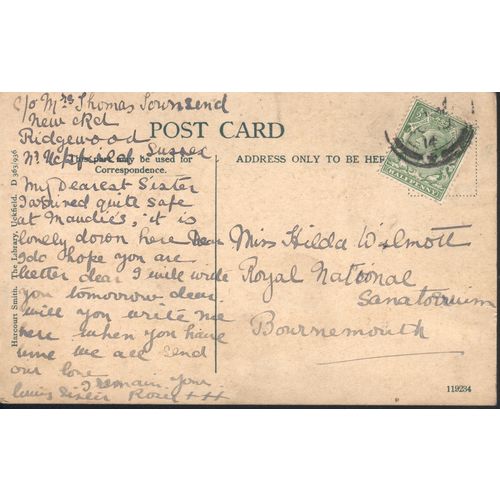 c/o Mrs Thomas Townsend
New Rd
Ridgewood
Nr Uckfield Sussex
POST CARD
This part may be used for
Correspondence.
ADDRESS ONLY TO BE HER
My Dearest Sister
I arived quite safe
at Maudie's, it is
lonely down here dear
I do hope you are
better dear I will write
you tomorrow dear
will you write me
here when you have
time we all send
our love
I remain your
loving sister Rose + + +
Miss Hilda Wilmott
Royal National
Sanatorium
Bournemouth
HALFPENNY
14
Harcourt Smith, The Library, Uckfield. D 363/936
119234